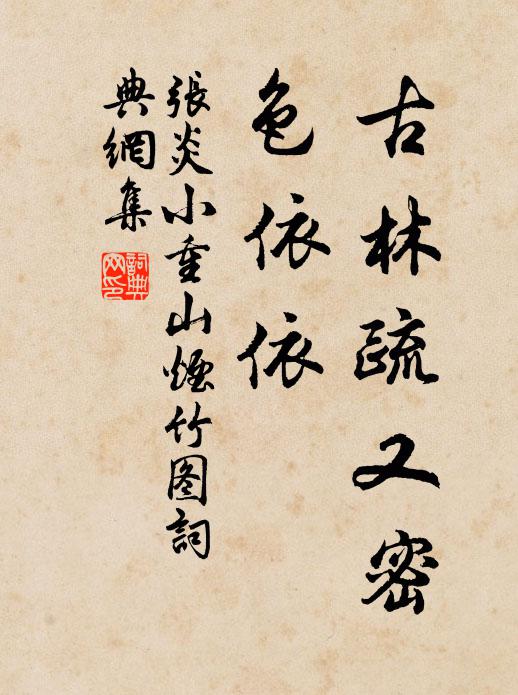 古林疏又密
色依依
張炎小重山煙竹图詞
典網集
詞典網印